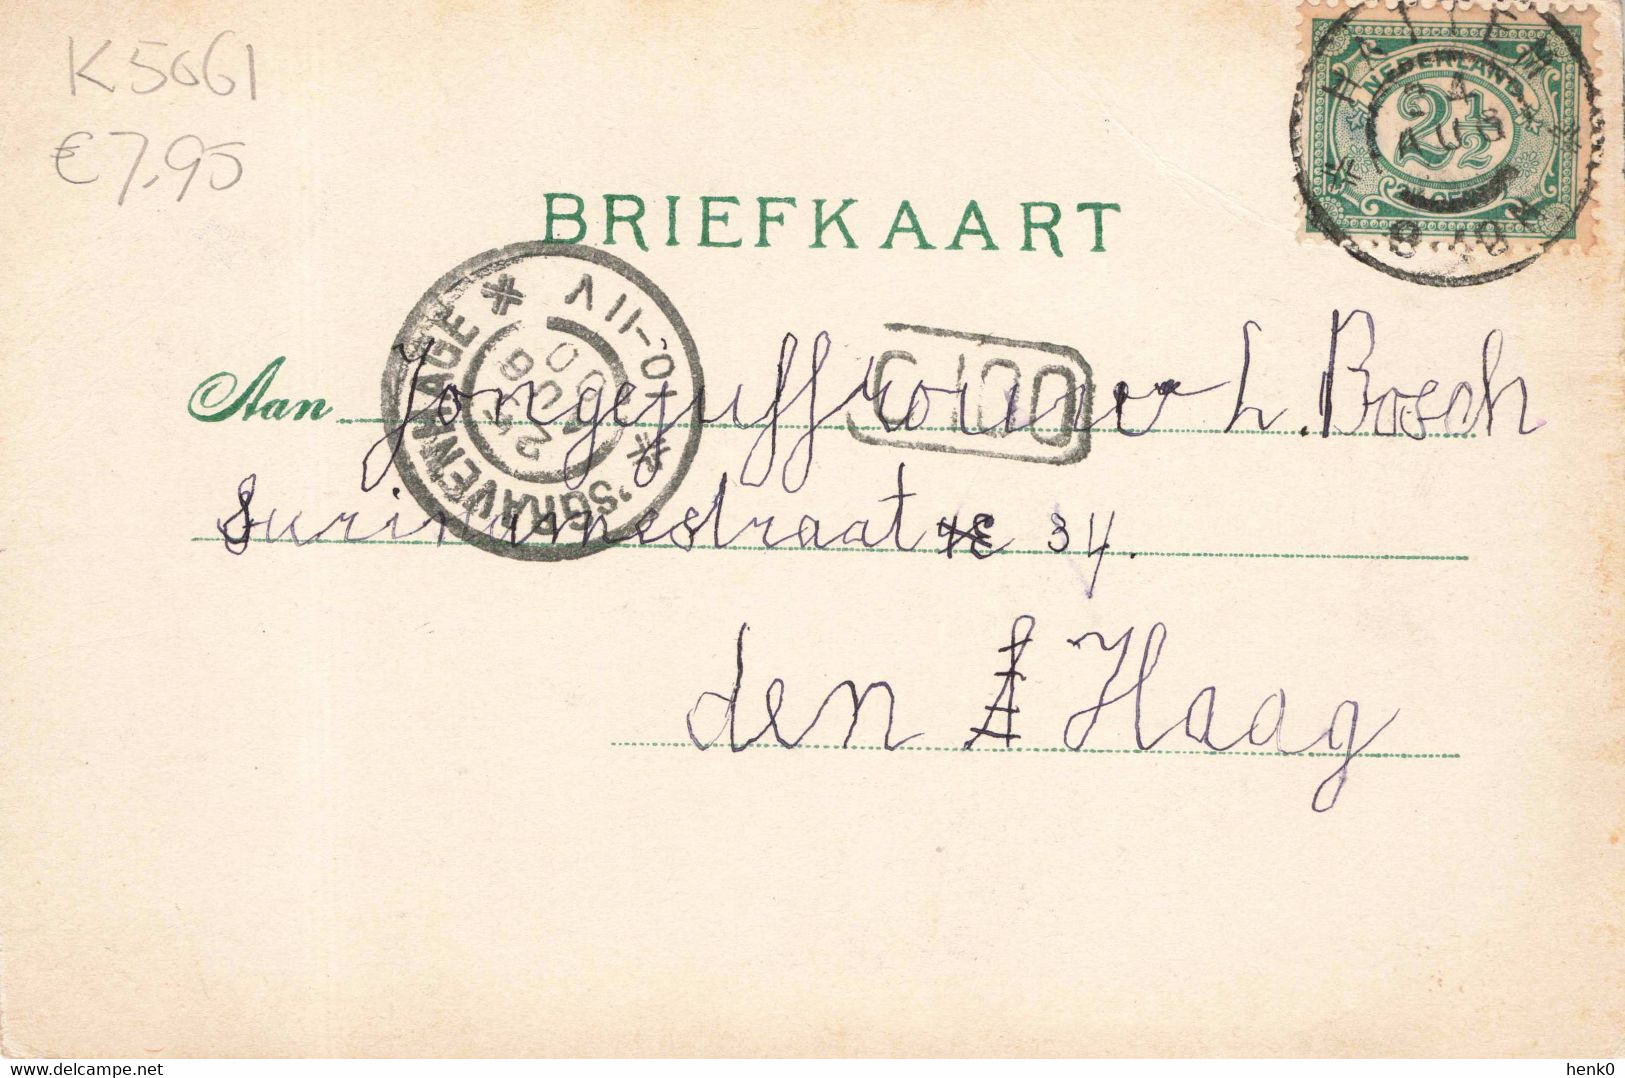 K 5061
€ 7,95
HATTEM
24 AUG
8-10
NEDERLAND
2½
BRIEFKAART
'SGRAVENHAGE
25 AUG 00
10-11V
C 100
Aan Jongejuffrouw L. Bosch
Surinamestraat 34.
den Haag
www.delcampe.net
henk0